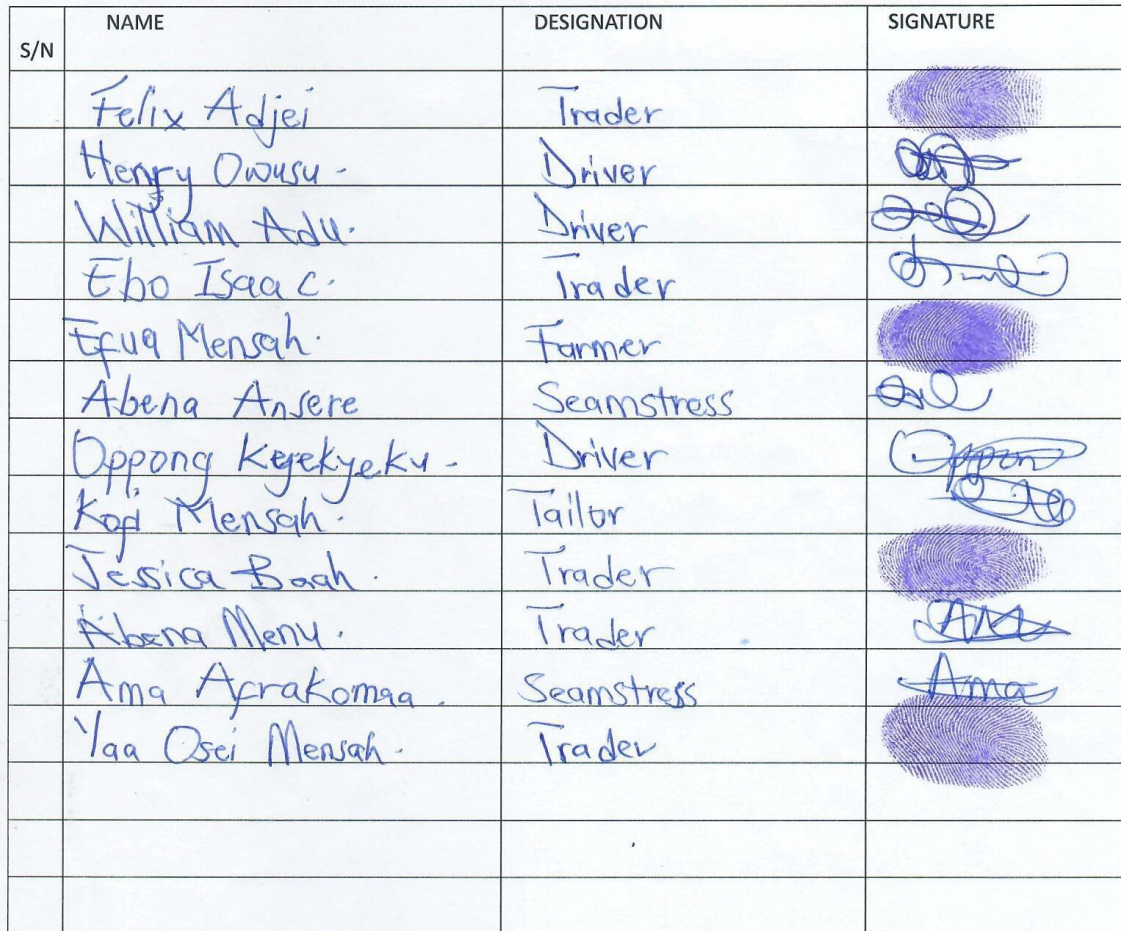 S/N NAME DESIGNATION SIGNATURE
Felix Adjei Trader
Henry Owusu. Driver
William Adu. Driver
Ebo Isaac. Trader
Efua Mensah. Farmer
Abena Ansere Seamstress
Oppong Kyekyeku. Driver Oppon
Kofi Mensah. Tailor
Jessica Baah. Trader
Abena Menu. Trader AM
Ama Afrakomaa. Seamstress Ama
Yaa Osei Mensah. Trader